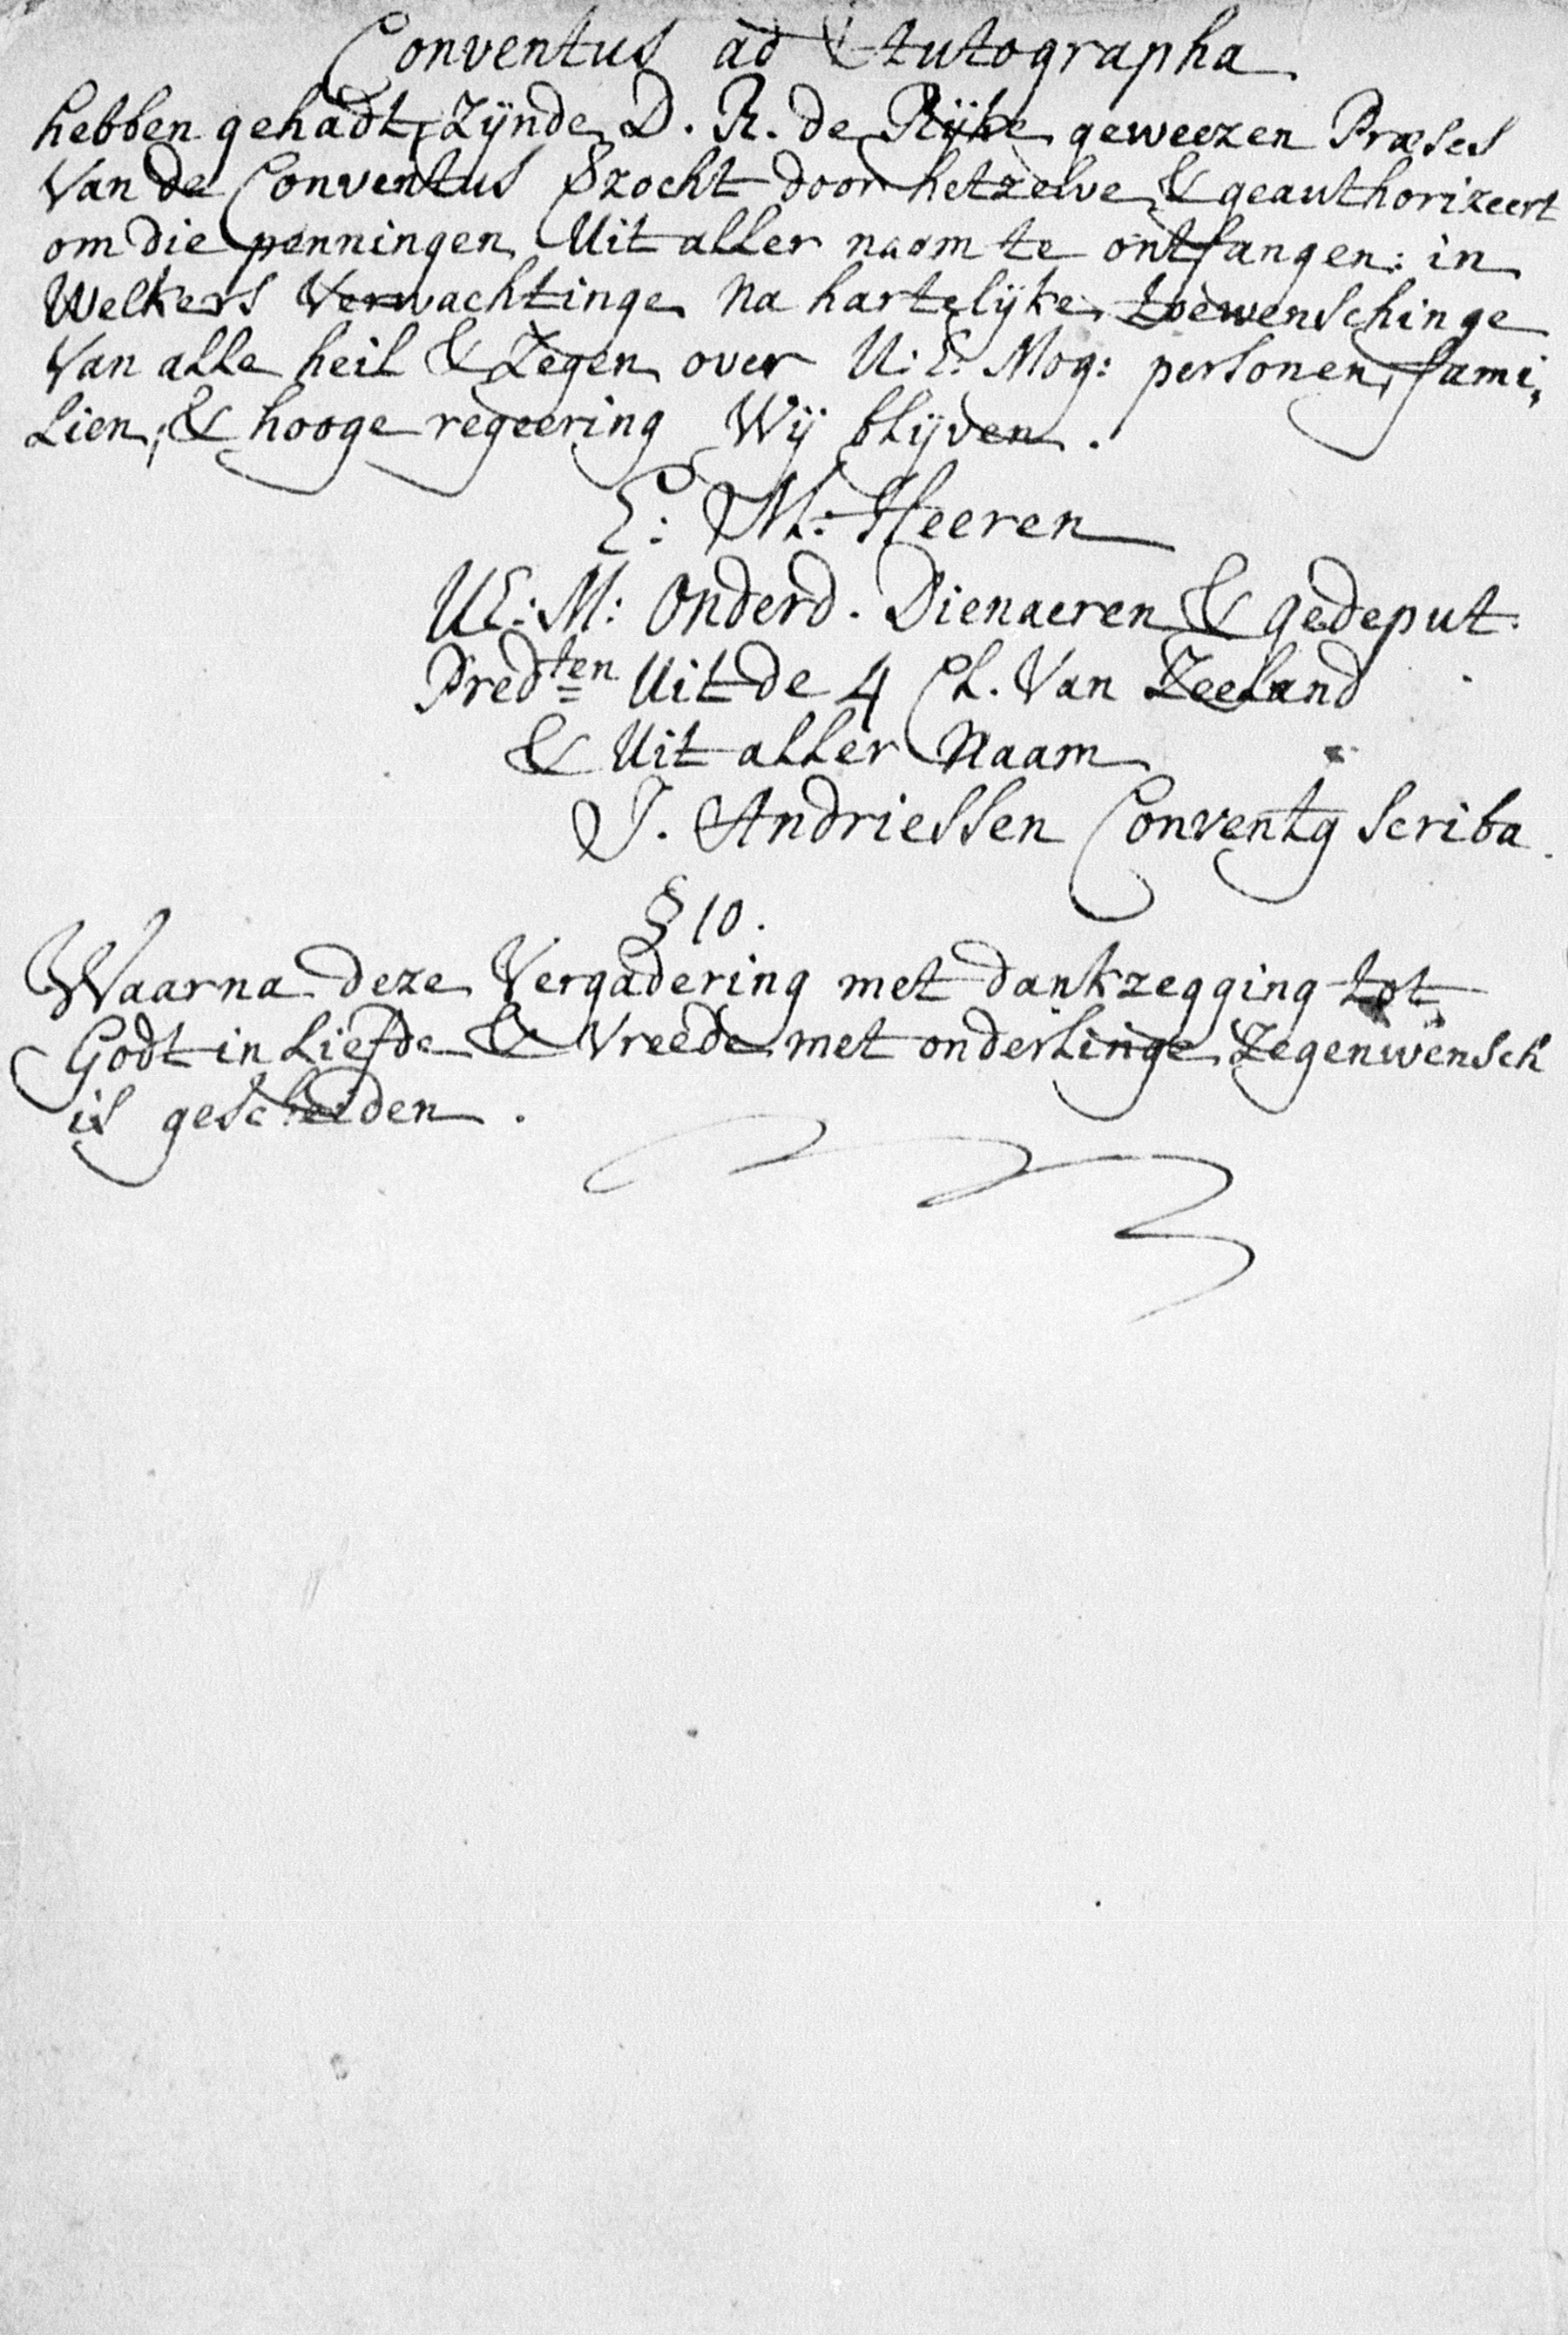 Conventus ad Autographa
hebben gehadt, zijnde D. R. de Rijke geweezen Præses
Van de Conventus Vzocht door hetzelve & geauthorizeert
om die penningen Uit aller naam te ontfangen: in
Welkers Verwachtinge na hartelijke toewenschinge
Van alle heil & Zegen over U: E: Mog: personen, fami,
lien, & hooge regeering Wij blijven.
E: M: Heeren
UE: M: Onderd. Dienaeren & gedeput.
Predten Uit de 4 Cl. Van Zeeland
& Uit aller Naam
J. Andriessen Convents scriba.
§ 10.
Waarna deze Vergadering met dankzegging tot
Godt in Liefde & Vreede met onderlinge Zegenwensch
is gescheiden.